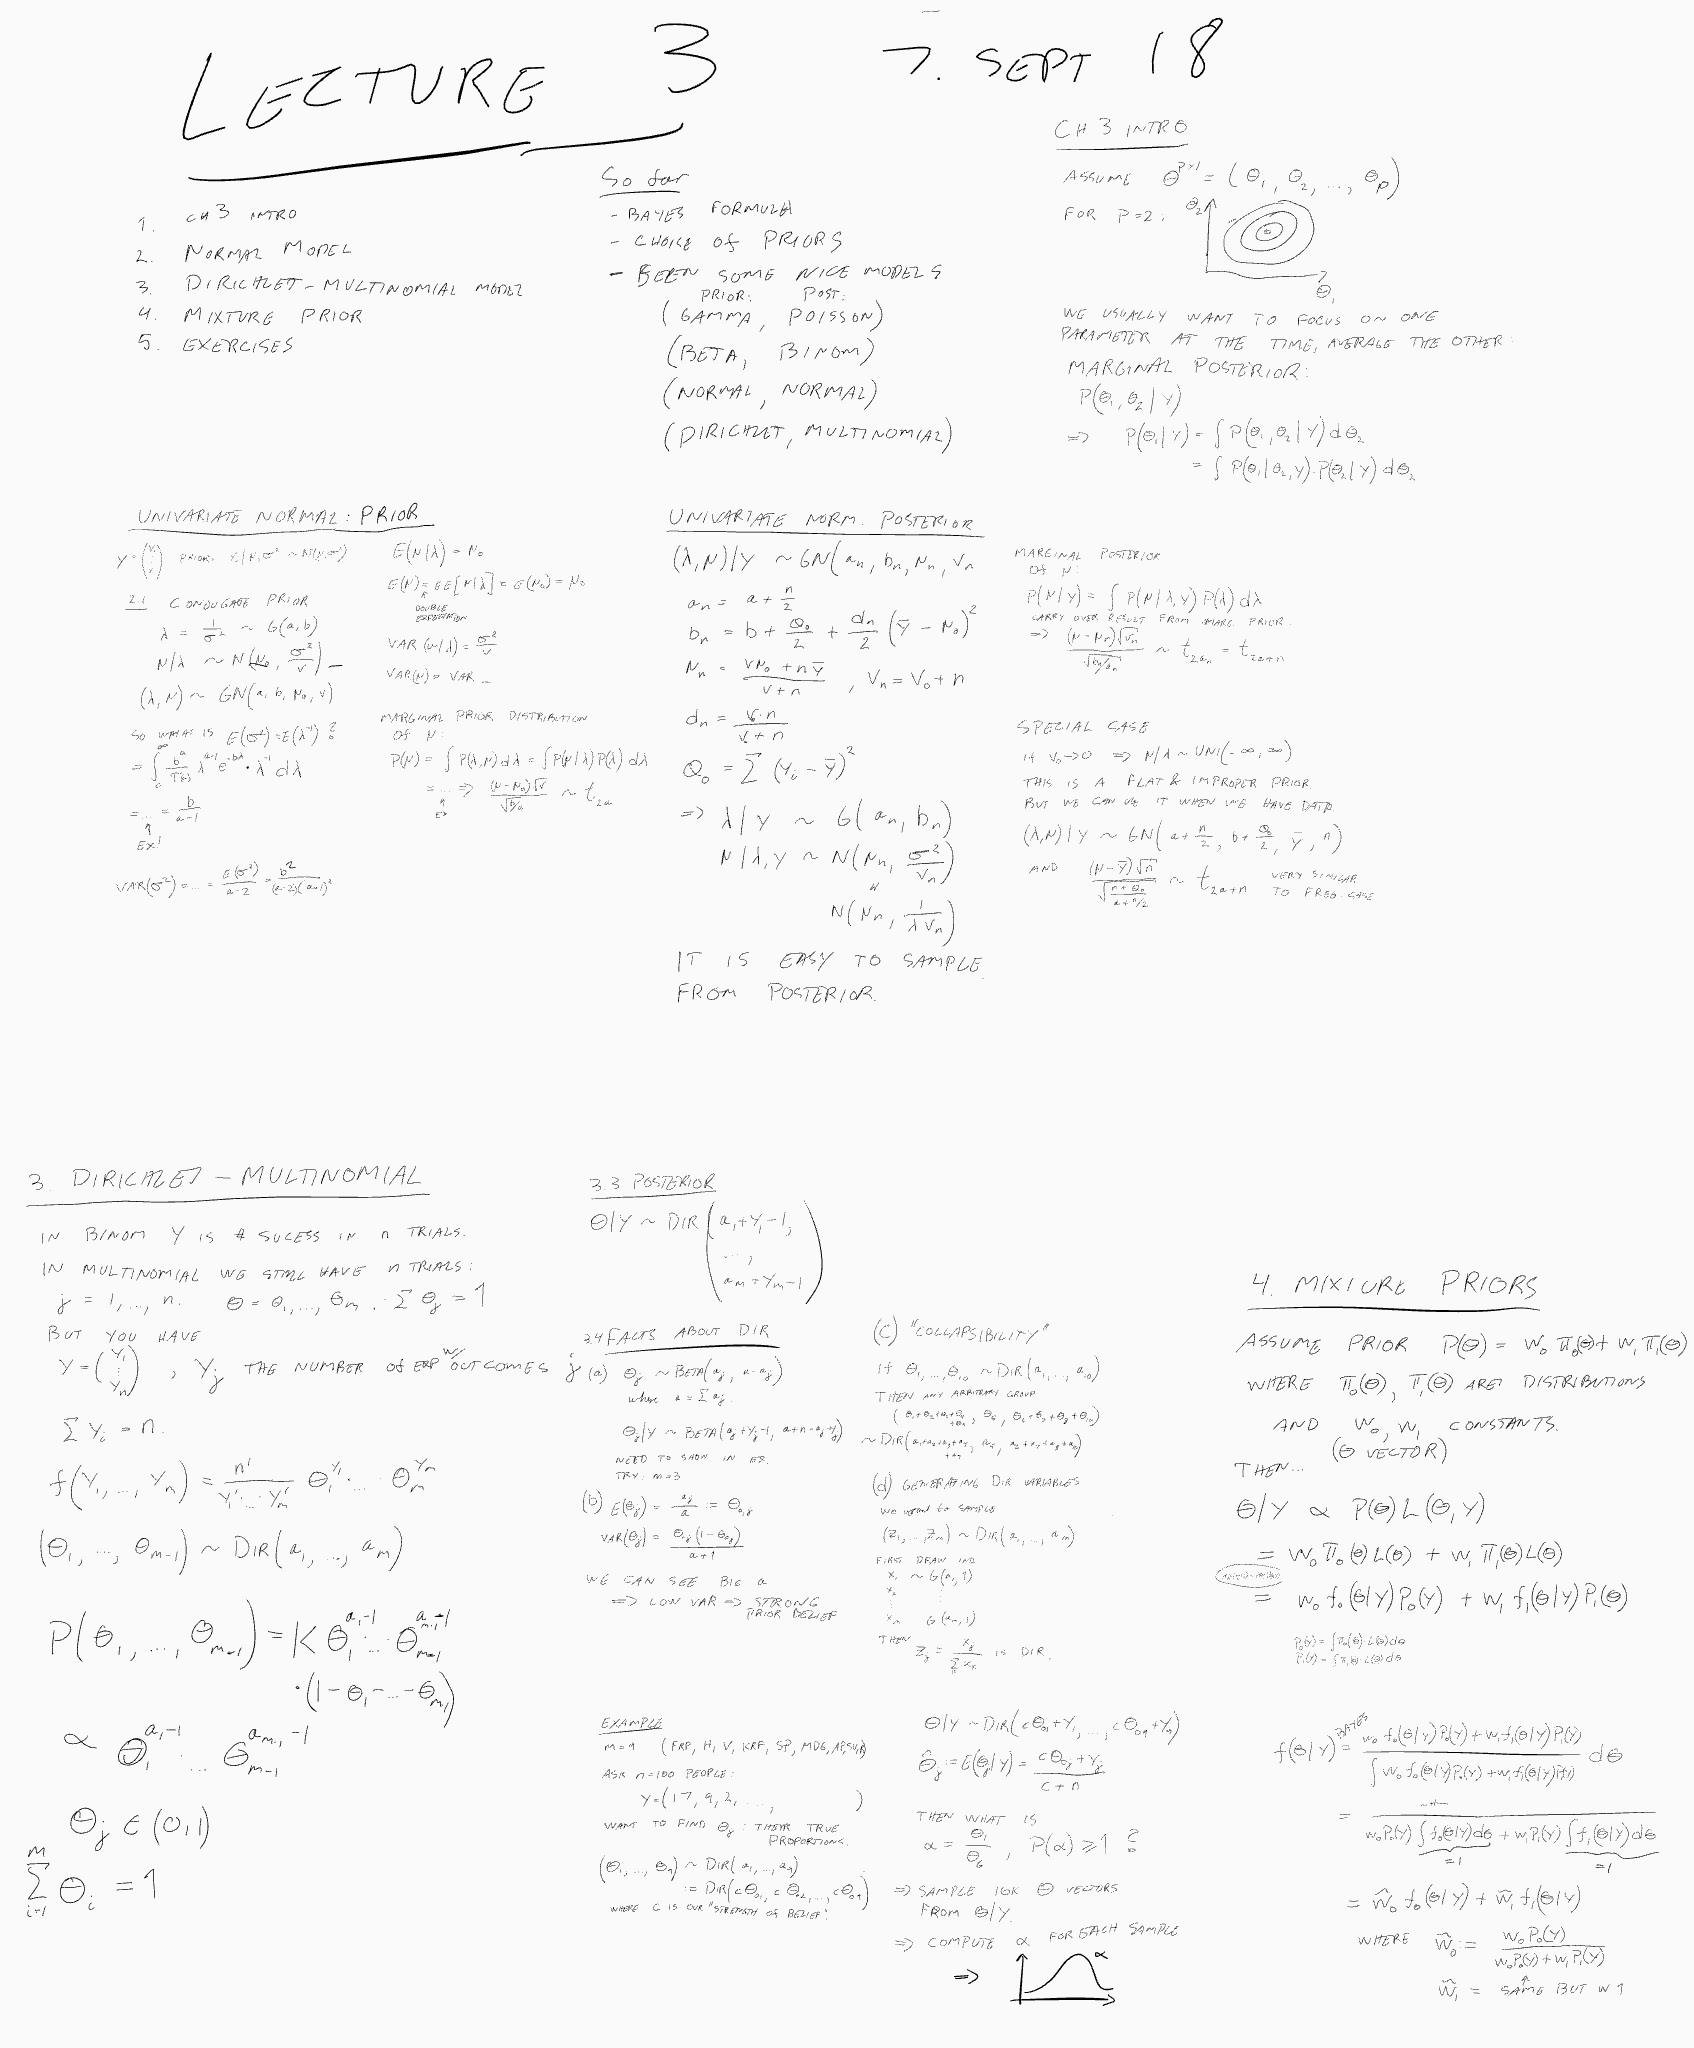 LECTURE 3 7. SEPT 18
1. CH 3 INTRO
2. NORMAL MODEL
3. DIRICHLET - MULTINOMIAL MODEL
4. MIXTURE PRIOR
5. EXERCISES
So far
- BAYES FORMULA
- CHOICE OF PRIORS
- BEEN SOME NICE MODELS
PRIOR: POST:
(GAMMA, POISSON)
(BETA, BINOM)
(NORMAL, NORMAL)
(DIRICHLET, MULTINOMIAL)
CH 3 INTRO
ASSUME Θ^{p×1} = (Θ₁, Θ₂, ..., Θp)
FOR P=2: Θ₂
Θ₁
WE USUALLY WANT TO FOCUS ON ONE
PARAMETER AT THE TIME, AVERAGE THE OTHER:
MARGINAL POSTERIOR:
P(Θ₁, Θ₂ | Y)
=> P(Θ₁|Y) = ∫ P(Θ₁, Θ₂ | Y) dΘ₂
= ∫ P(Θ₁|Θ₂, Y)·P(Θ₂|Y) dΘ₂
UNIVARIATE NORMAL: PRIOR
2.1 CONJUGATE PRIOR
λ = 1/σ² ~ G(a, b)
μ|λ ~ N(μ₀, σ²/v)
(λ, μ) ~ GN(a, b, μ₀, v)
SO WHAT IS E(σ²) = E(λ⁻¹) ?
= ∫₀^∞ b^a/Γ(a) λ^{a-1} e^{-bλ} · λ⁻¹ dλ
= ... = b/(a-1)
EX!
VAR(σ²) = ... = E(σ²)/(a-2) = b²/((a-2)(a-1)²
E(μ|λ) = μ₀
E(μ) = EE[μ|λ] = E(μ₀) = μ₀
DOUBLE
EXPECTATION
VAR(μ|λ) = σ²/v
VAR(μ) = VAR ...
MARGINAL PRIOR DISTRIBUTION
OF μ:
P(μ) = ∫ P(λ, μ) dλ = ∫ P(μ|λ) P(λ) dλ
= ... => (μ-μ₀)√v / √(b/a) ~ t₂ₐ
EX
UNIVARIATE NORM. POSTERIOR
(λ, μ)|Y ~ GN(aₙ, bₙ, μₙ, vₙ
aₙ = a + n/2
bₙ = b + Q₀/2 + dₙ/2 (ȳ - μ₀)²
μₙ = (vμ₀ + nȳ)/(v + n), vₙ = v₀ + n
dₙ = v·n/(v + n)
Q₀ = Σ (yᵢ - ȳ)²
=> λ|Y ~ G(aₙ, bₙ)
μ|λ, Y ~ N(μₙ, σ²/vₙ)
N(μₙ, 1/(λvₙ))
IT IS EASY TO SAMPLE
FROM POSTERIOR.
MARGINAL POSTERIOR
OF μ:
P(μ|Y) = ∫ P(μ|λ, Y) P(λ) dλ
CARRY OVER RESULT FROM MARG. PRIOR.
=> (μ-μₙ)√vₙ / √(bₙ/aₙ) ~ t_{2aₙ} = t_{2a+n}
SPECIAL CASE
IF v₀→0 => μ|λ ~ UNI(-∞, ∞)
THIS IS A FLAT & IMPROPER PRIOR
BUT WE CAN USE IT WHEN WE HAVE DATA.
(λ, μ)|Y ~ GN(a + n/2, b + Q₀/2, ȳ, n)
AND (μ-ȳ)√n / √((n+Q₀)/(a+n/2)) ~ t_{2a+n} VERY SIMILAR
TO FREQ. CASE
3. DIRICHLET - MULTINOMIAL
IN BINOM Y IS # SUCESS IN n TRIALS.
IN MULTINOMIAL WE STILL HAVE n TRIALS:
j = 1, ..., n. Θ = Θ₁, ..., Θm. Σ Θj = 1
BUT YOU HAVE
Y = (Y₁ ⋮ Yn), Yj THE NUMBER OF EXP W/ OUTCOMES j
Σ Yi = n.
f(Y₁, ..., Yn) = n!/(Y₁!...Ym!) Θ₁^{Y₁} ... Θm^{Ym}
(Θ₁, ..., Θm-1) ~ DIR(a₁, ..., am)
P(Θ₁, ..., Θm-1) = K Θ₁^{a₁-1} ... Θm-1^{am-1-1}
·(1-Θ₁-...-Θm-1)
∝ Θ₁^{a₁-1} ... Θm-1^{am-1-1}
Θj ∈ (0,1)
Σ_{i=1}^{M} Θi = 1
3.3 POSTERIOR
Θ|Y ~ DIR(a₁+Y₁-1,
...,
am+Ym-1)
3.4 FACTS ABOUT DIR
(a) Θj ~ BETA(aj, a-aj)
where a = Σaj.
Θj|Y ~ BETA(aj+Yj-1, a+n-aj+Yj)
NEED TO SHOW IN EX.
TRY: m=3
(b) E(Θj) = aj/a := Θ₀,j
VAR(Θj) = Θ₀j(1-Θ₀j)/(a+1)
WE CAN SEE BIG a
=> LOW VAR => STRONG
PRIOR BELIEF
(C) "COLLAPSIBILITY"
IF Θ₁, ..., Θ₁₀ ~ DIR(a₁, ..., a₁₀)
THEN ANY ARBITRARY GROUP
(d) GENERATING DIR VARIABLES
WE WANT TO SAMPLE
(Z₁, ..., Zm) ~ DIR(a₁, ..., am)
FIRST DRAW IND
X₁ ~ G(a₁, 1)
X₂ ⋮
⋮
Xm G(am, 1)
THEN Zj = Xj/ΣXk IS DIR.
EXAMPLE
ASK n=100 PEOPLE:
Y=(17, 9, 2, ..., )
WANT TO FIND Θj: THEIR TRUE
PROPORTIONS.
(Θ₁, ..., Θ9) ~ DIR(a₁, ..., a9)
:= DIR(cΘ₀₁, cΘ₀₂, ..., cΘ₀9)
WHERE C IS OUR "STRENGTH OF BELIEF".
Θ|Y ~ DIR(cΘ₀₁+Y₁, ..., cΘ₀9+Y9)
Θ̂j := E(Θj|Y) = (cΘ₀j+Yj)/(c+n)
THEN WHAT IS
α = Θ₁/Θ₆, P(α) ≥ 1 ?
=> SAMPLE 10K Θ VECTORS
FROM Θ|Y.
=> COMPUTE α FOR EACH SAMPLE
=> α
4. MIXTURE PRIORS
ASSUME PRIOR P(Θ) = w₀π₀(Θ) + w₁π₁(Θ)
WHERE π₀(Θ), π₁(Θ) ARE DISTRIBUTIONS
AND w₀, w₁ CONSTANTS.
(Θ VECTOR)
THEN...
Θ|Y ∝ P(Θ) L(Θ, Y)
= w₀π₀(Θ)L(Θ) + w₁π₁(Θ)L(Θ)
= w₀f₀(Θ|Y)P₀(Y) + w₁f₁(Θ|Y)P₁(Θ)
P₀(Y) = ∫π₀(Θ)·L(Θ)dΘ
P₁(Y) = ∫π₁(Θ)·L(Θ)dΘ
f(Θ|Y) = BAYES (w₀f₀(Θ|Y)P₀(Y) + w₁f₁(Θ|Y)P₁(Y)) / (∫w₀f₀(Θ|Y)P₀(Y) + w₁f₁(Θ|Y)P₁(Y)) dΘ
= -"- / (w₀P₀(Y)∫f₀(Θ|Y)dΘ + w₁P₁(Y)∫f₁(Θ|Y)dΘ)
=1 =1
= ŵ₀f₀(Θ|Y) + ŵ₁f₁(Θ|Y)
WHERE ŵ₀ := w₀P₀(Y)/(w₀P₀(Y)+w₁P₁(Y))
ŵ₁ = SAME BUT W 1